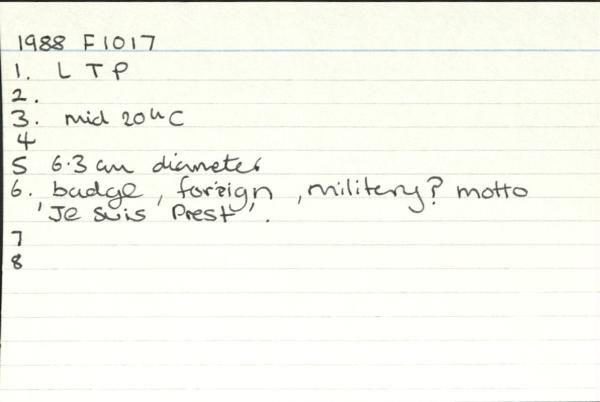 1988 F1017
1. L T P
2.
3. mid 20th C
4
5 6.3 cm diameter
6. badge, foreign, military? motto
'Je suis Prest'.
7
8